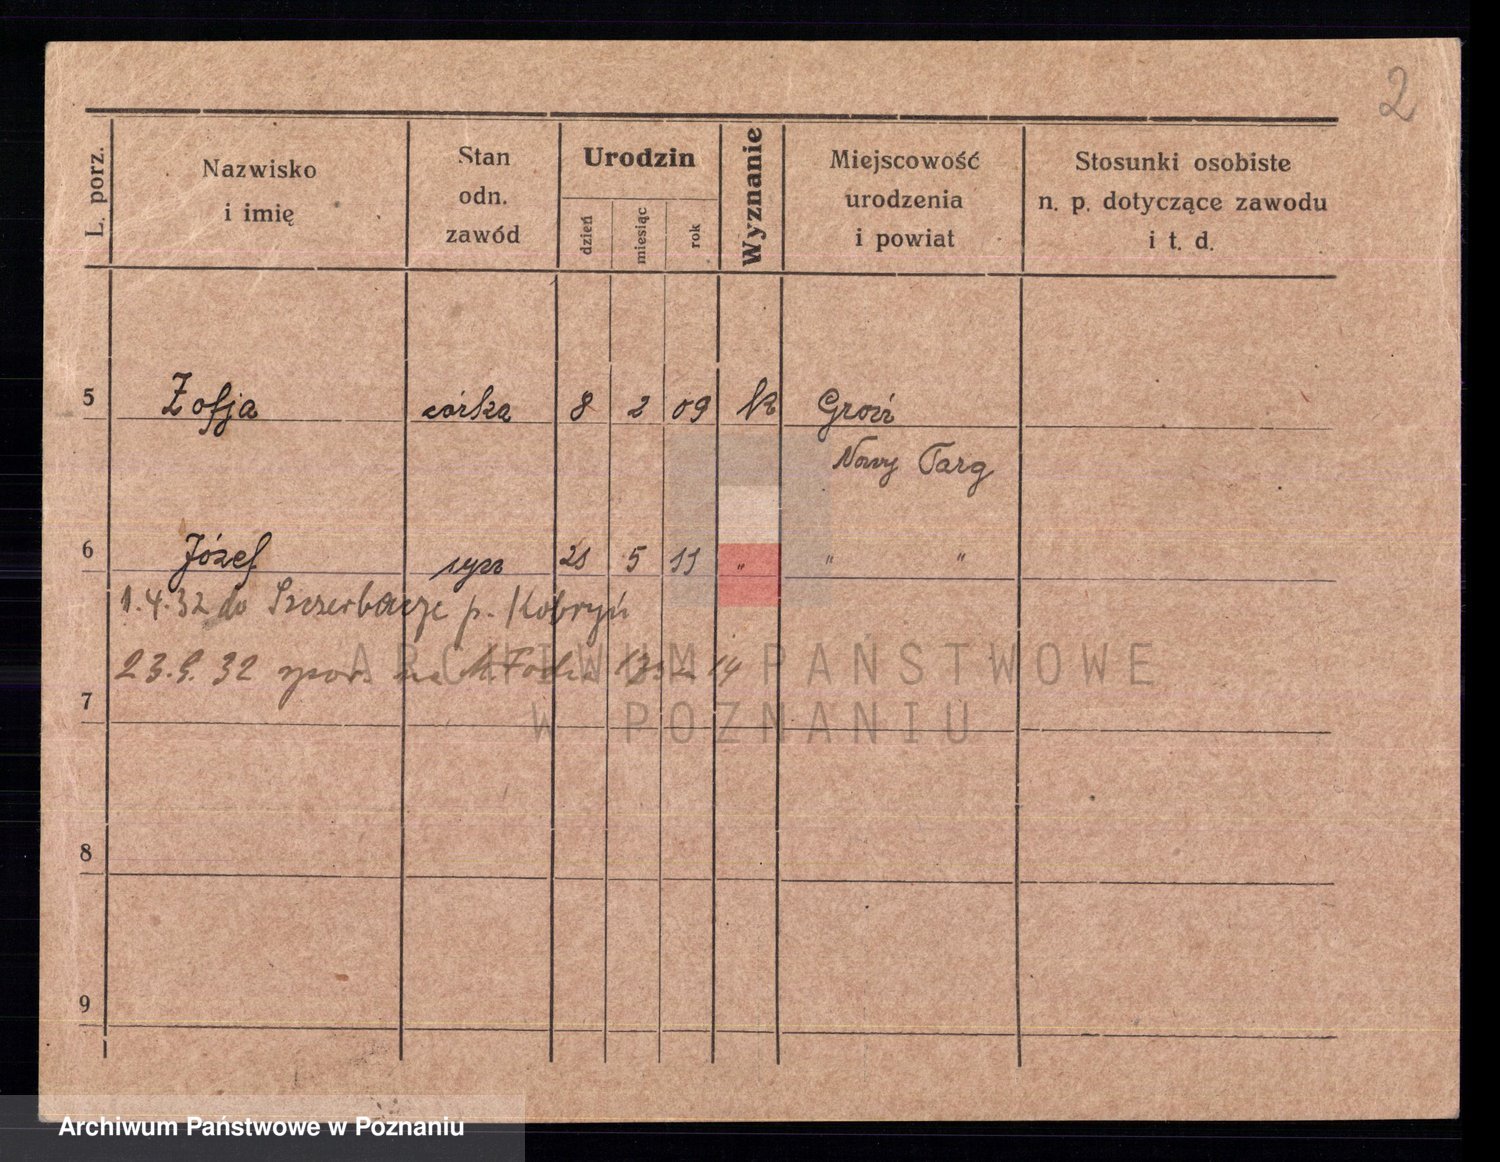 2
L. porz.
Nazwisko
i imię
Stan
odn.
zawód
Urodzin
dzień
miesiąc
rok
Wyznanie
Miejscowość
urodzenia
i powiat
Stosunki osobiste
n. p. dotyczące zawodu
i t. d.
5 Zofja córka 8 2 09 rk
Nowy Targ
6 Józef syn 21 5 11 " " "
1.4.32 do p. Kobryń
23.9.32 14
7
8
9
ARCHIWUM PAŃSTWOWE
W POZNANIU
Archiwum Państwowe w Poznaniu